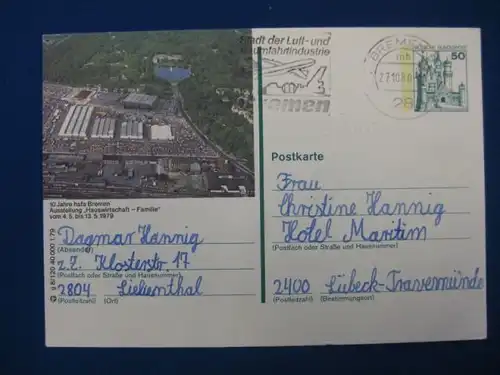 Stadt der Luft- und
Raumfahrtindustrie
Bremen
BREMEN
mh
27.10.80
28
DEUTSCHE BUNDESPOST
50
10 Jahre hafa Bremen
Ausstellung „Hauswirtschaft – Familie"
vom 4. 5. bis 13. 5. 1979
Postkarte
Frau
Christine Hannig
Hotel Maritim
(Postfach oder Straße und Hausnummer)
2400 Lübeck-Travemünde
(Postleitzahl) (Bestimmungsort)
Dagmar Hannig
(Absender)
z.Z. Klosterstr 17
(Postfach oder Straße und Hausnummer)
2804 Lilienthal
(Postleitzahl) (Ort)